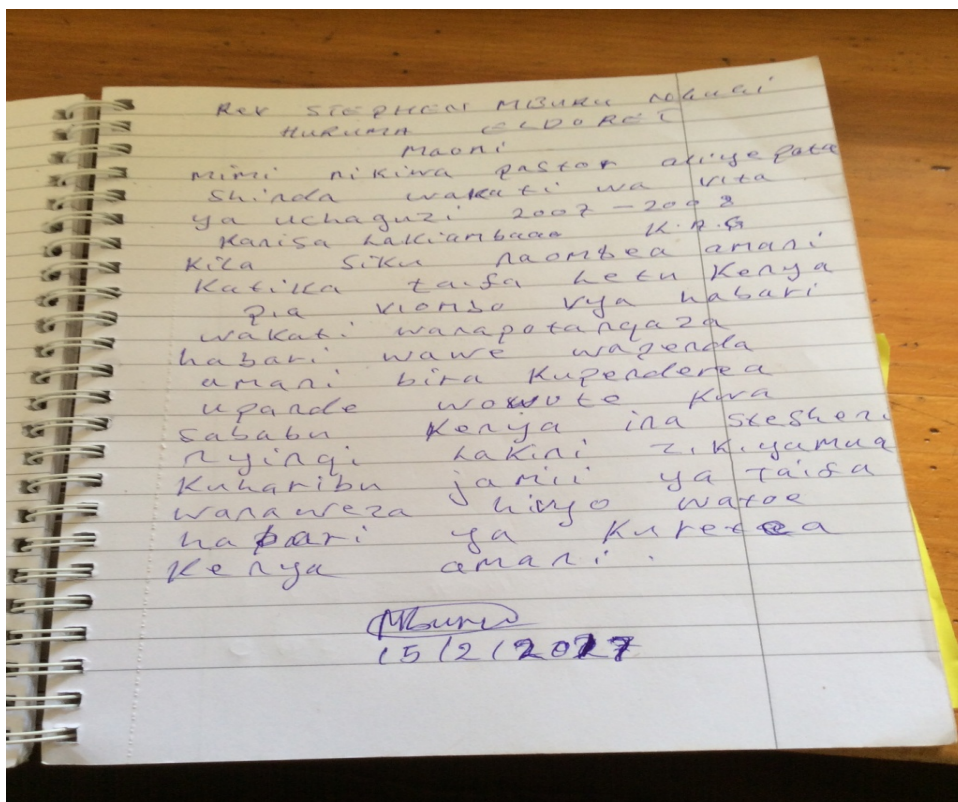 Rev STEPHEN MBURU NDUGI
HURUMA ELDORET
maoni
mimi nikiwa pastor aliyepata
shinda wakati wa vita
ya uchaguzi 2007 - 2008
Kanisa Lakiambaaa K.A.G
Kila siku naombea amani
Katika taifa letu Kenya
pia viombo vya habari
wakati wanapotangaza
habari wawe wapenda
amani bira Kupenderea
upande wowote Kwa
sababu Kenya ina stesheni
nyingi Lakini zikiyamua
Kuharibu jamii ya Taifa
wanaweza hivyo watoe
habari ya Kuretea
Kenya amani.
MBuru
15/2/2017